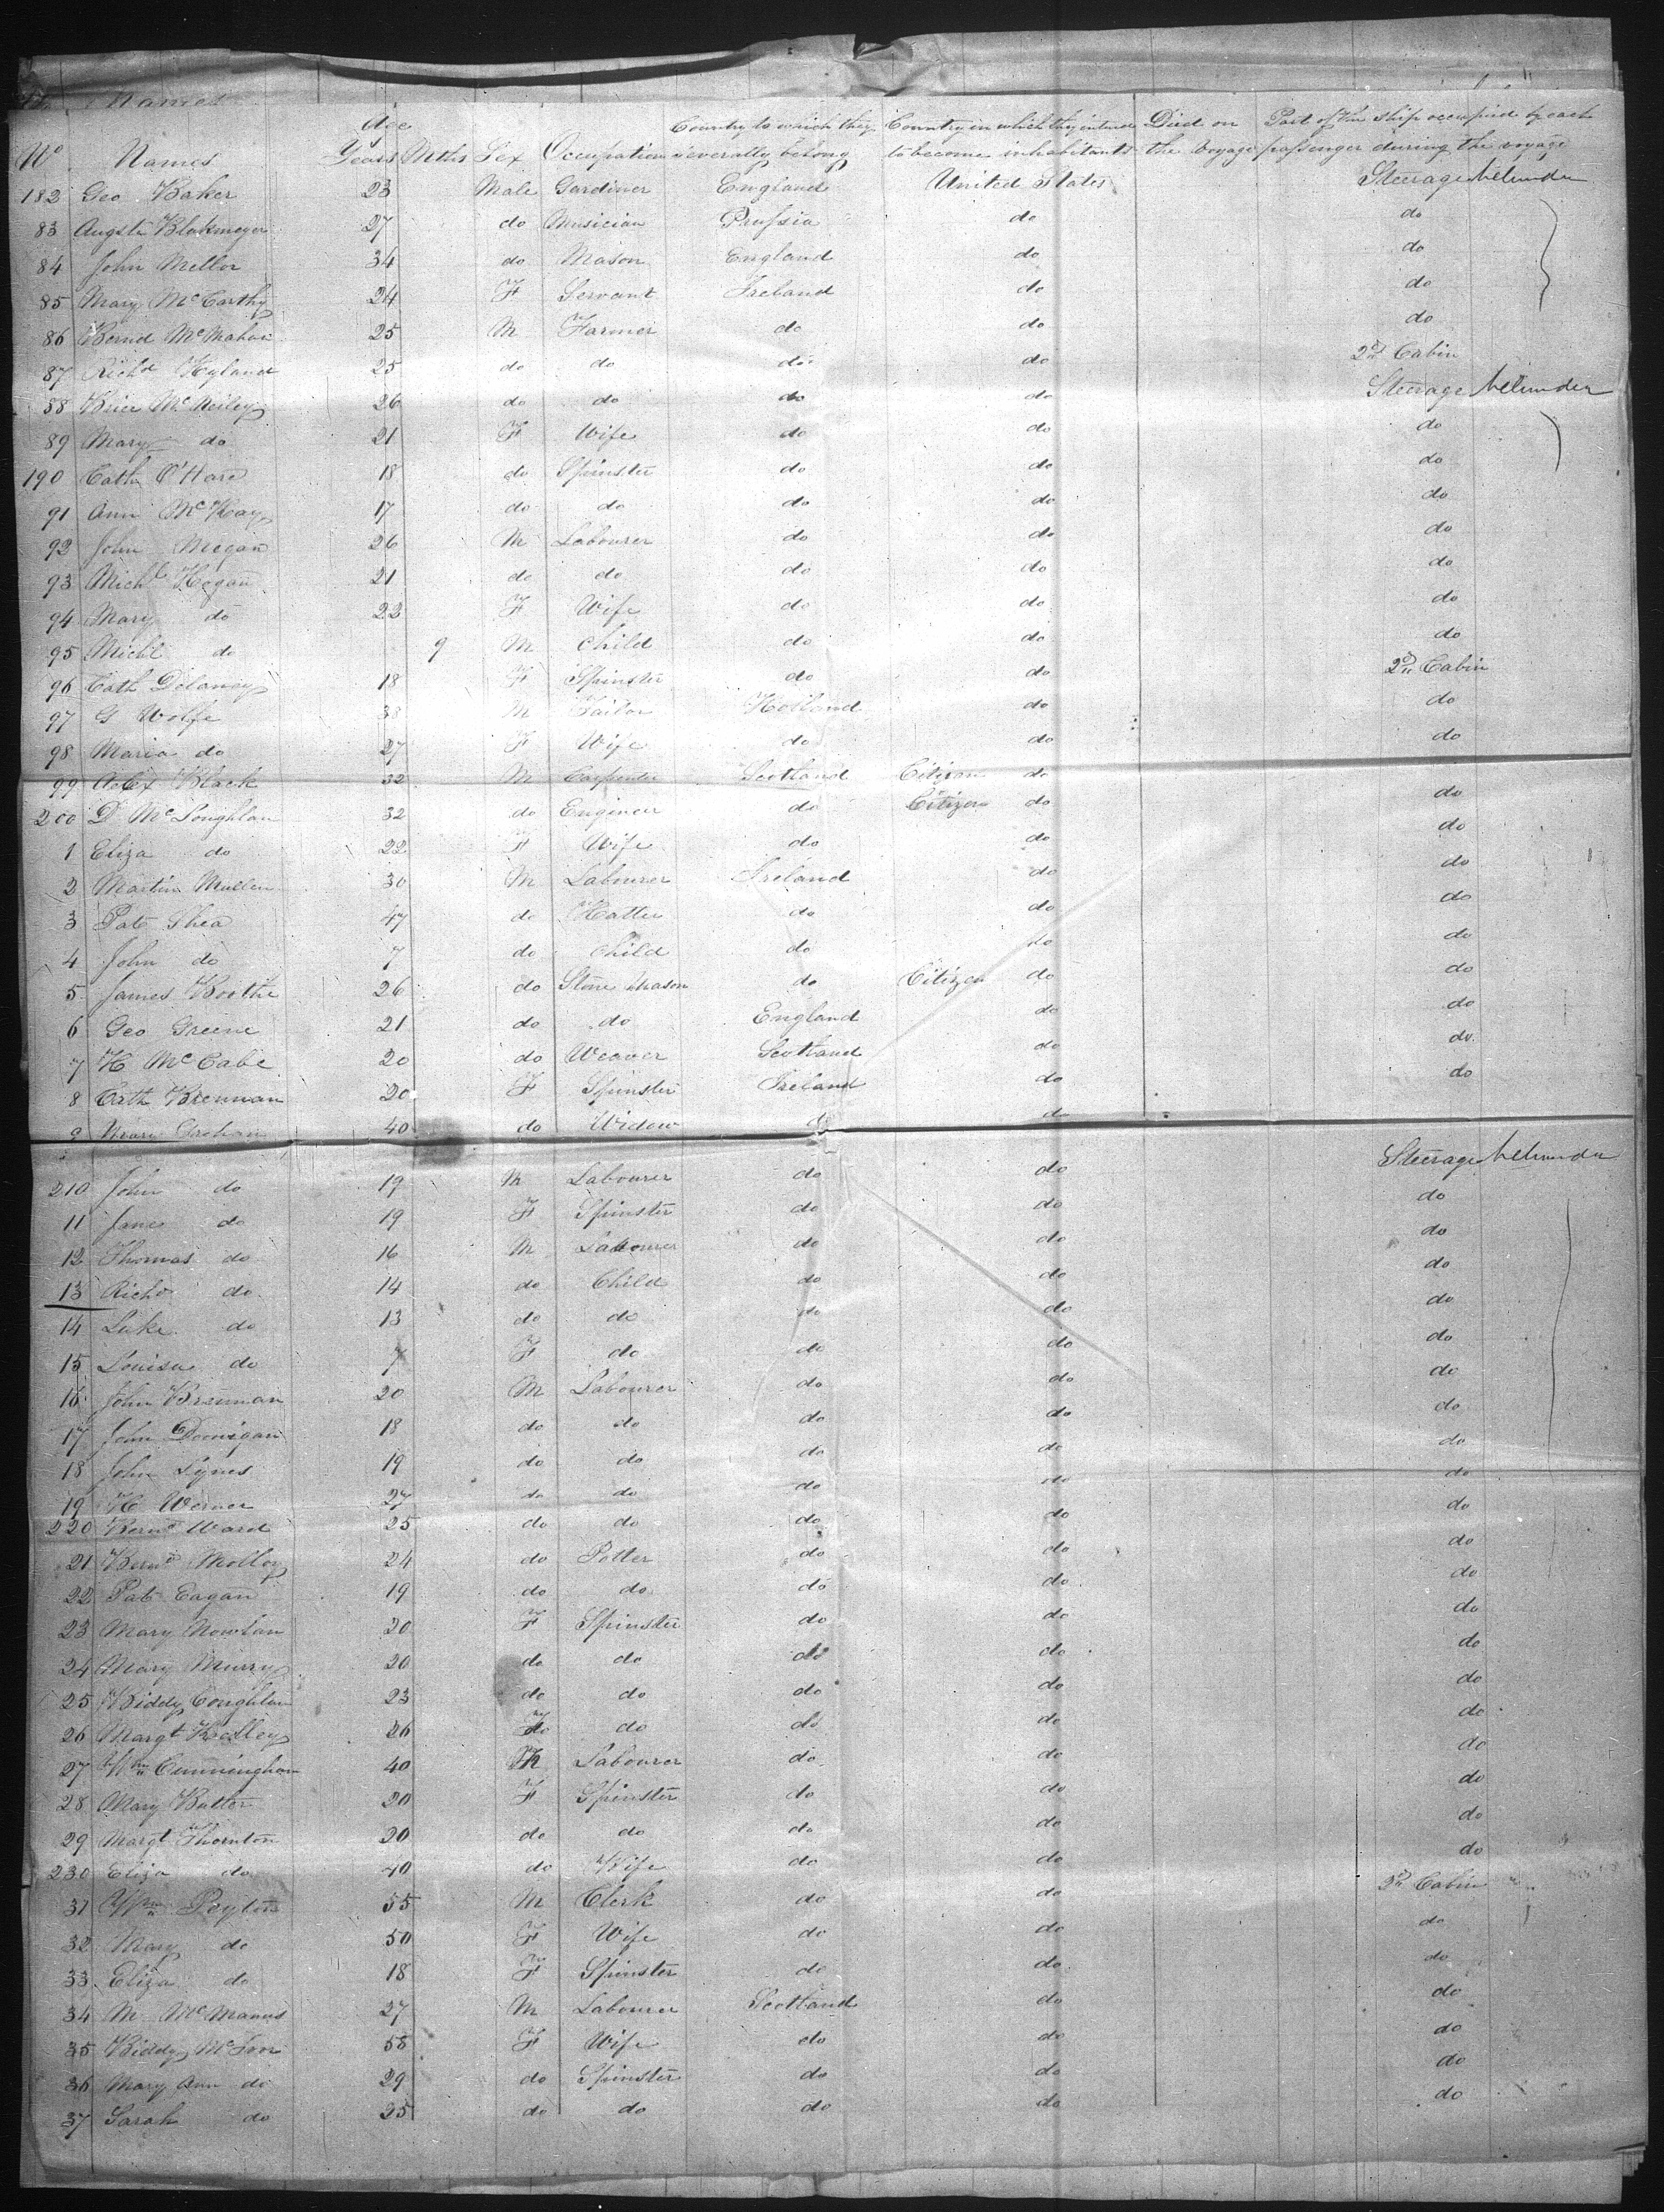 Names
No Names Age Years Mths Sex Occupation Country to which they severally belong Country in which they intend to become inhabitants Died on the voyage Part of the ship occupied by each passenger during the voyage
182 Geo Baker 23 Male Gardiner England United States Steerage
83 Augste Blakmeyer 27 do Musician Prussia do do
84 John Mellor 34 do Mason England do do
85 Mary McCarthy 24 F Servant Ireland do do
86 Bernd McMahon 25 M Farmer do do do
87 Richd Hyland 25 do do do do 2d Cabin
88 Brier McNeiley 26 do do do do Steerage
89 Mary do 21 F Wife do do do
190 Cath O'Hare 18 do Spinster do do do
91 Ann McKay 17 do do do do do
92 John Megan 26 M Labourer do do do
93 Michl Hogan 21 do do do do do
94 Mary do 22 F Wife do do do
95 Michl do 9 M Child do do do
96 Cath Delaney 18 F Spinster do do 2d Cabin
97 G Wolfe 38 M Tailor Holland do do
98 Maria do 27 F Wife do do do
99 Alex Black 32 M Carpenter Scotland Citizen do
200 D McLoughlan 32 do Engineer do Citizen do do
1 Eliza do 22 F Wife do do do
2 Martin Mullen 30 M Labourer Ireland do do
3 Pat Shea 47 do Hatter do do do
4 John do 7 do Child do do do
5 James Boothe 26 do Stone Mason do Citizen do do
6 Geo Greene 21 do do England do do
7 H McCabe 20 do Weaver Scotland do do
8 Cath Brennan 20 F Spinster Ireland do do
9 40 do Widow do do
210 John do 19 M Labourer do do Steerage
11 Jane do 19 F Spinster do do do
12 Thomas do 16 M Labourer do do do
13 Richd do 14 do Child do do do
14 Luke do 13 do do do do do
15 Louisa do 7 F do do do do
16 John Brennan 20 M Labourer do do do
17 John Donigan 18 do do do do do
18 John Lynes 19 do do do do do
19 H Werner 27 do do do do do
220 Bernd Ward 25 do do do do do
21 Bernd Molloy 24 do Potter do do do
22 Pat Eagan 19 do do do do do
23 Mary Nowlan 20 F Spinster do do do
24 Mary Murry 20 do do do do do
25 Biddy Coughlan 23 do do do do do
26 Margt Kelley 26 do do do do do
27 Wm Cunningham 40 M Labourer do do do
28 Mary Butler 20 F Spinster do do do
29 Margt Thornton 20 do do do do do
230 Eliza do 40 do Wife do do do
31 Wm Peyton 55 M Clerk do do 2d Cabin
32 Mary do 50 F Wife do do do
33 Eliza do 18 F Spinster do do do
34 M McManus 27 M Labourer Scotland do do
35 Biddy 58 F Wife do do do
36 Mary Ann do 29 do Spinster do do do
37 Sarah do 25 do do do do do